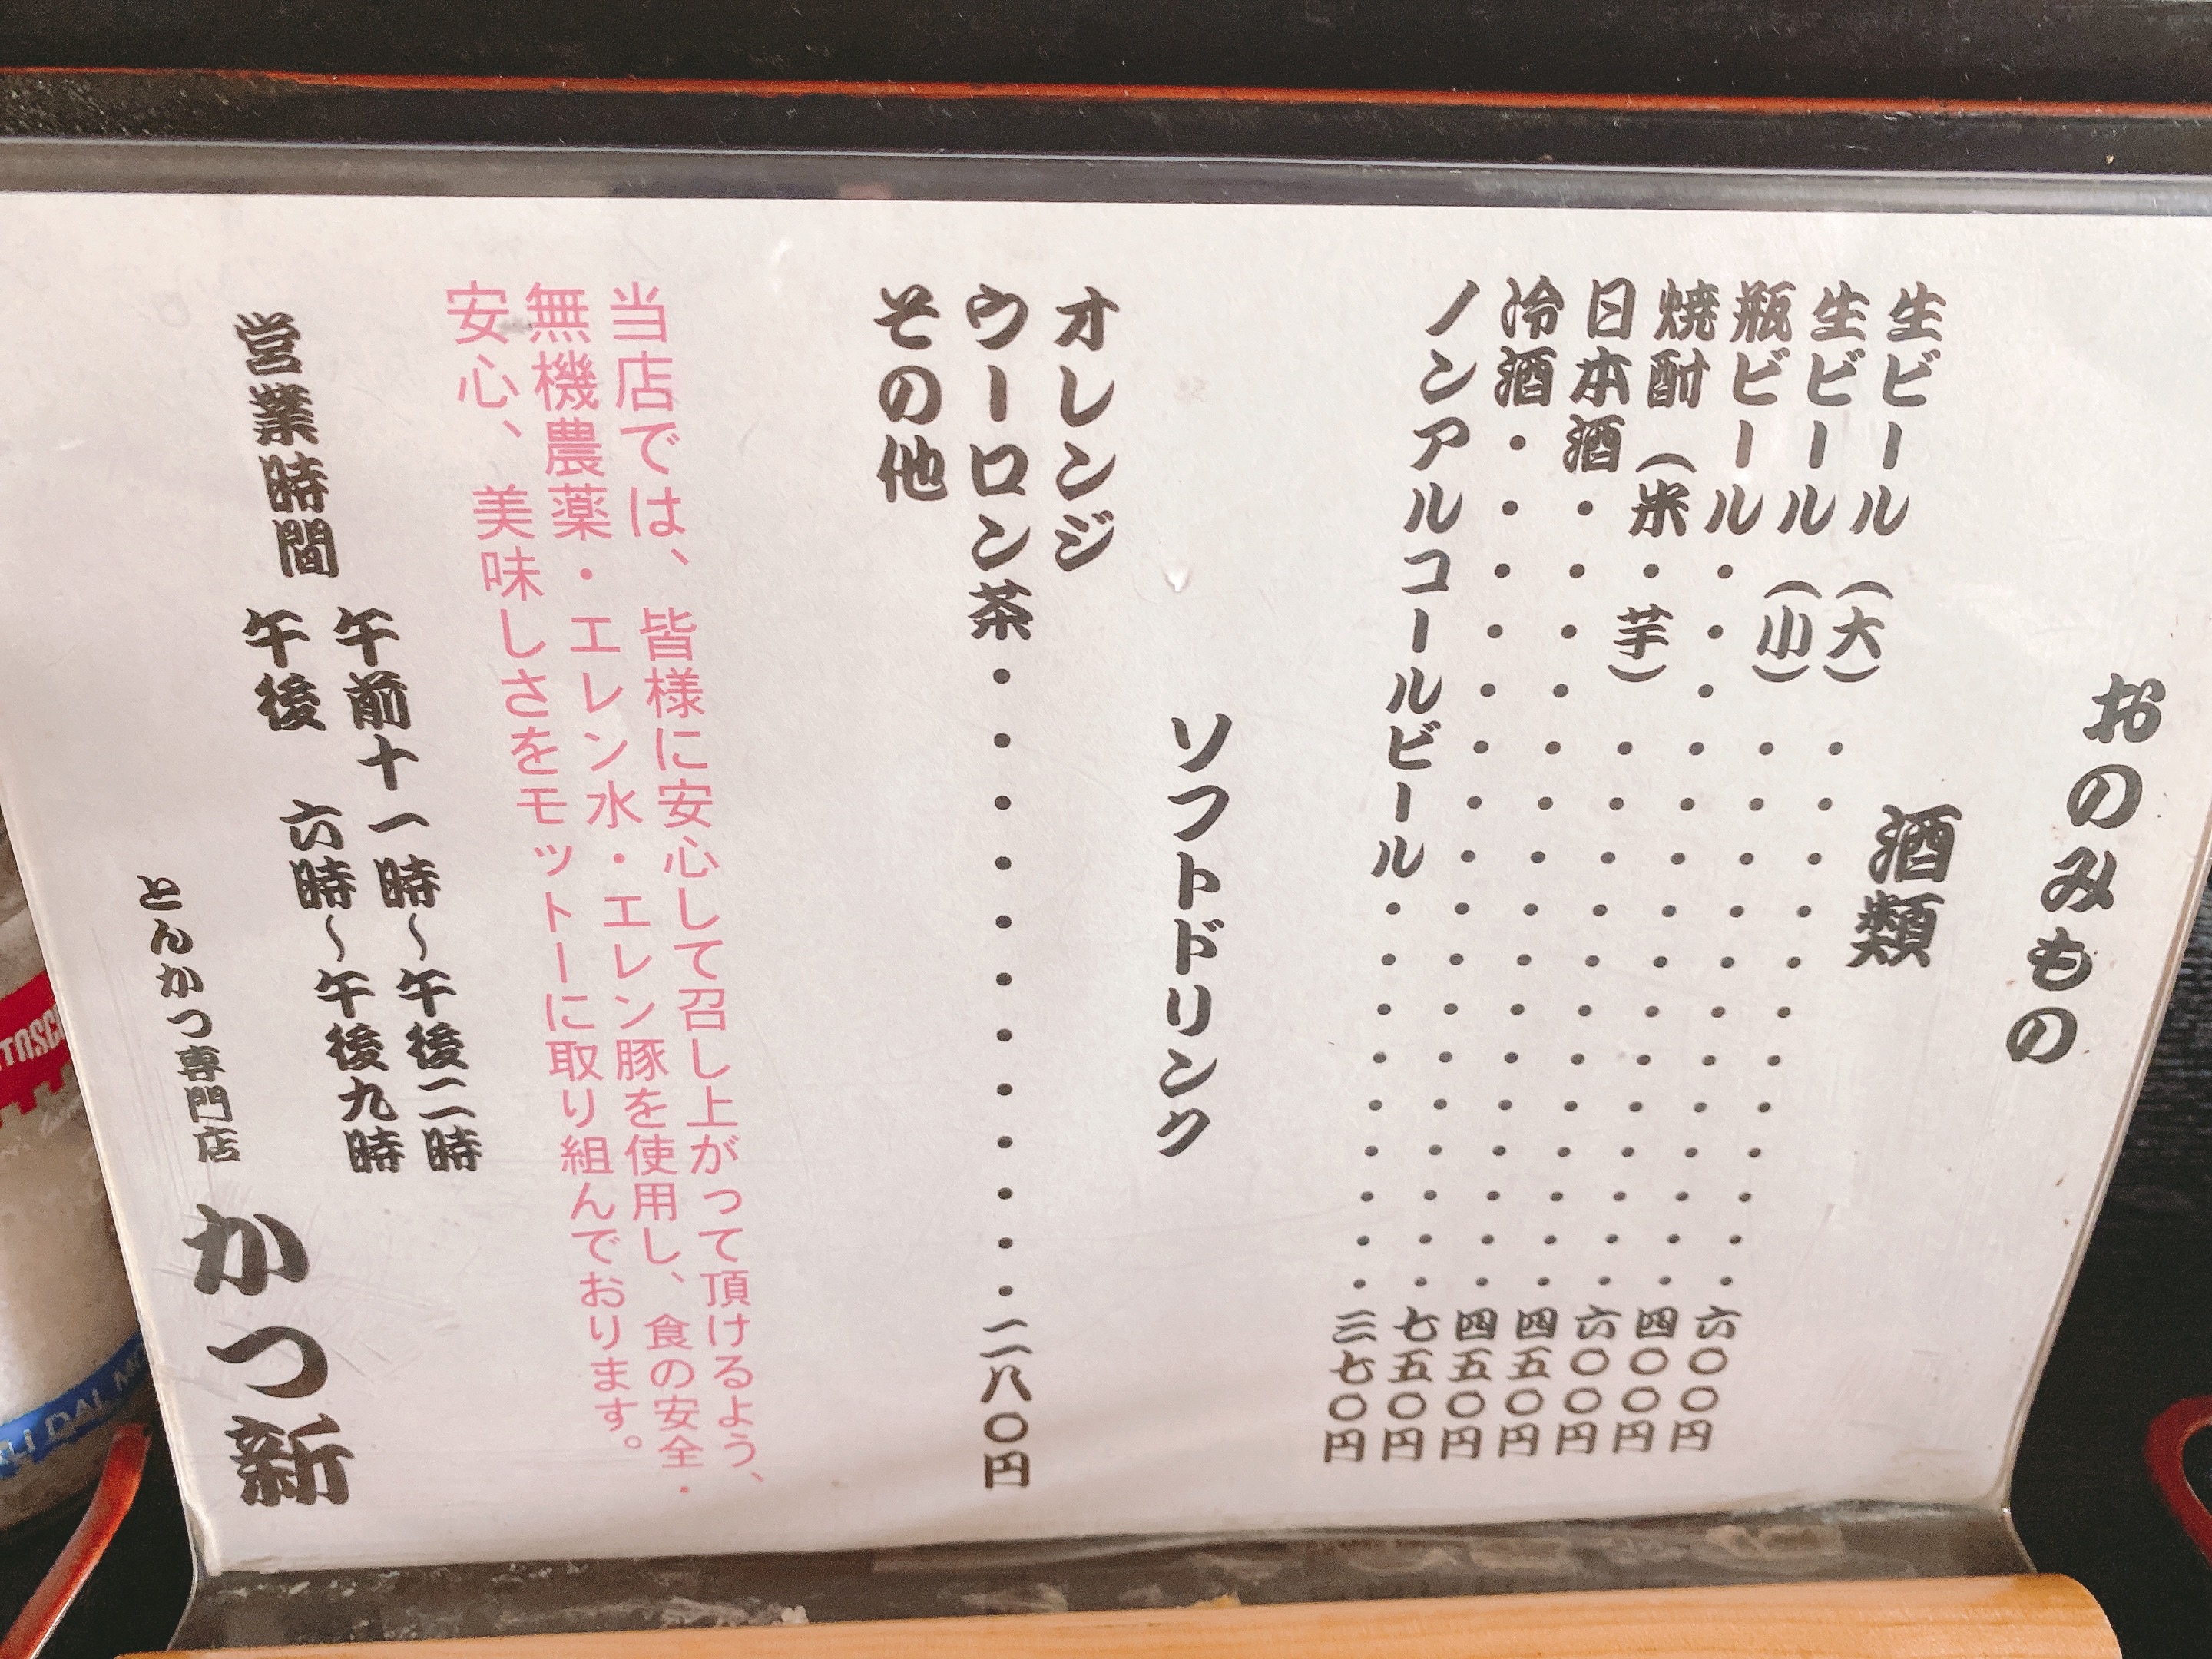 おのみもの
酒類
生ビール（大）・・・・・・・・・・・六〇〇円
生ビール（小）・・・・・・・・・・・四〇〇円
瓶ビール・・・・・・・・・・・・・・六〇〇円
焼酎（米・芋）・・・・・・・・・・・四五〇円
日本酒・・・・・・・・・・・・・・・四五〇円
冷酒・・・・・・・・・・・・・・・・七五〇円
ノンアルコールビール・・・・・・・・三七〇円
ソフトドリンク
オレンジ
ウーロン茶・・・・・・・・・・・二八〇円
その他
当店では、皆様に安心して召し上がって頂けるよう、
無機農薬・エレン水・エレン豚を使用し、食の安全・
安心、美味しさをモットーに取り組んでおります。
営業時間 午前十一時～午後二時
午後 六時～午後九時
とんかつ専門店 かつ新